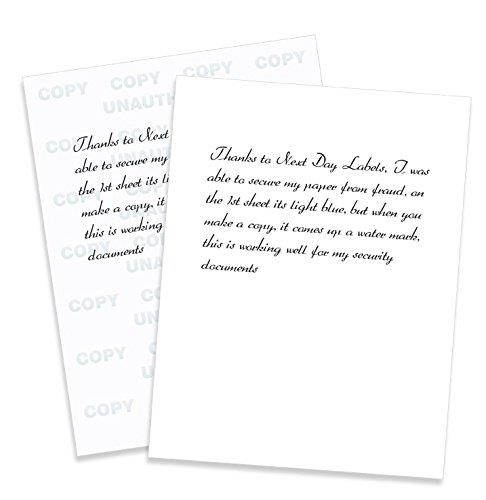 COPY COPY COPY COPY
UNAUTH
Thanks to Next
able to secure my
the 1st sheet its li
make a copy, it
this is working
documents
COPY
COPY
UNAU
COPY CO
UNA
COPY
Thanks to Next Day Labels, I was
able to secure my paper from fraud, on
the 1st sheet its light blue, but when you
make a copy, it comes up a water mark,
this is working well for my security
documents